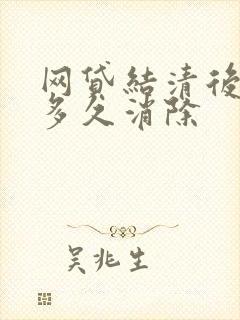 网贷结清後
多久消除
吴兆生